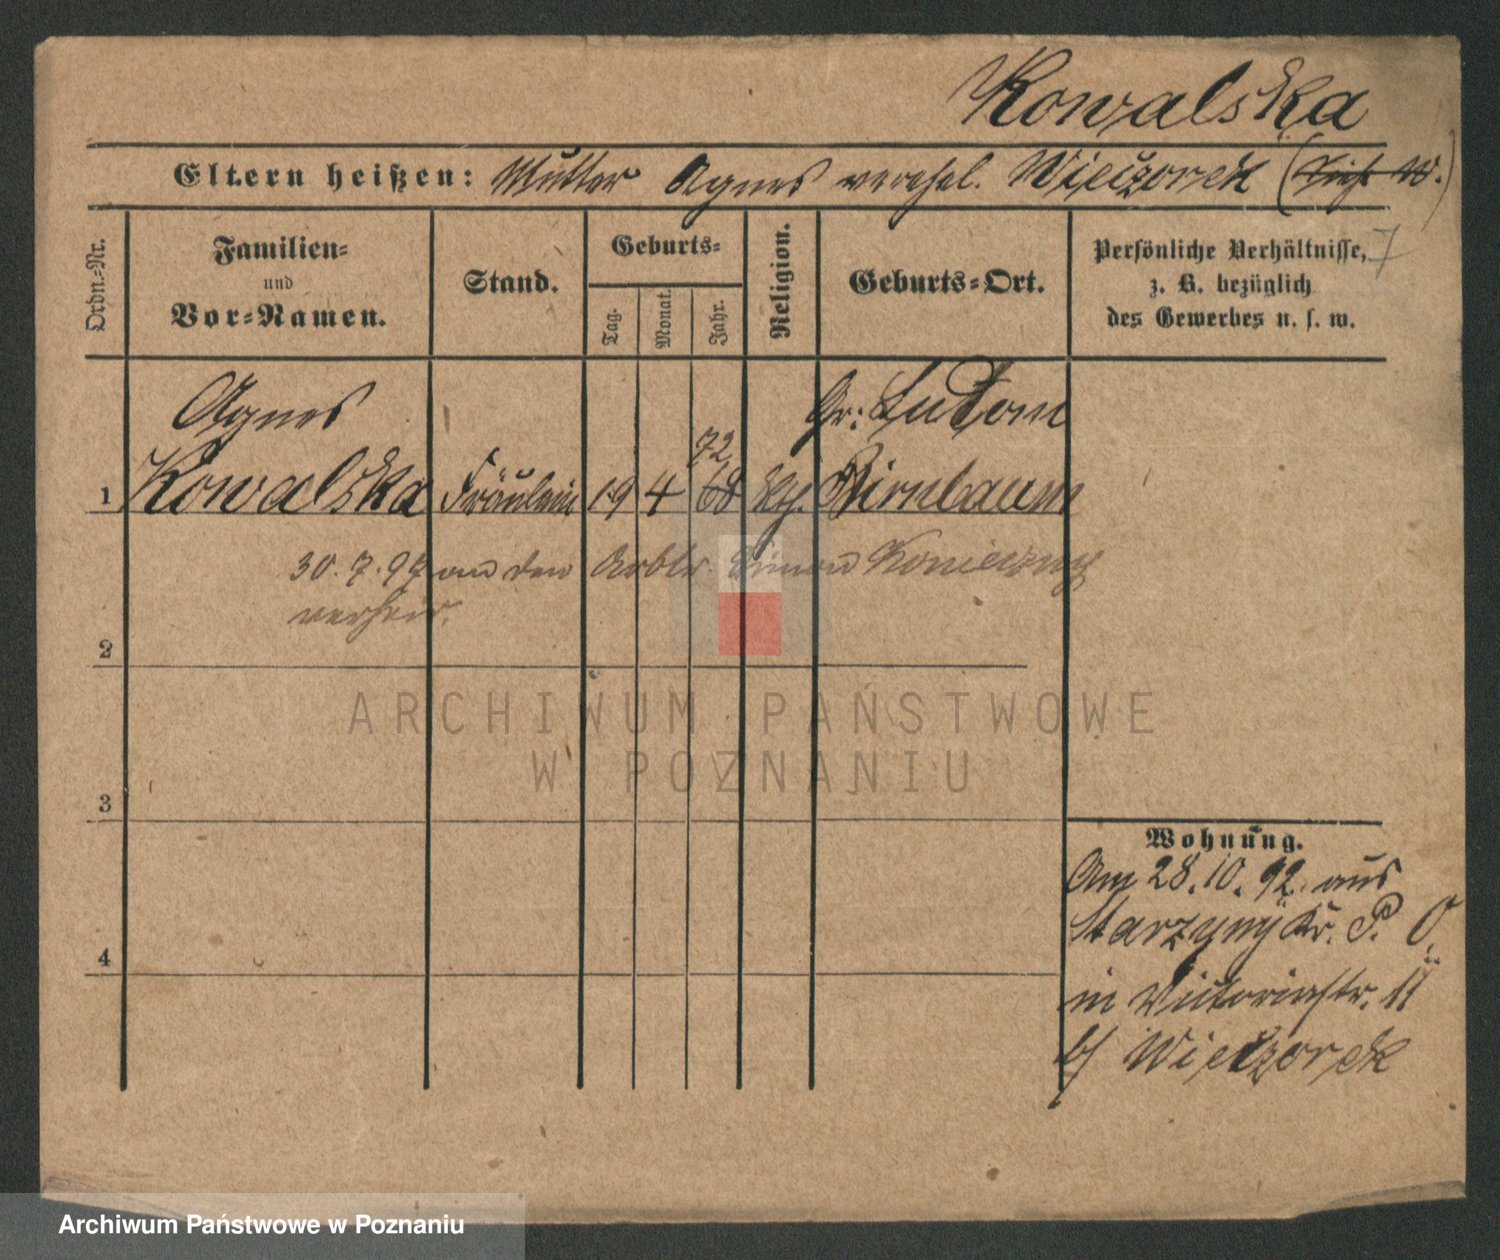 Kowalska
Eltern heißen: Mutter Agnes verehel. Wieczorek (siehe W.)
Ordn.-Nr.
Familien-
und
Vor-Namen.
Stand.
Geburts-
Tag.
Monat.
Jahr.
Religion.
Geburts-Ort.
Persönliche Verhältnisse, 7
z. B. bezüglich
des Gewerbes u. s. w.
Agnes Gr: Ludom
72
1 Kowalska Fräulein 19 4 68 Birnbaum
30.7.97 an den Arbtr. Simon Konieczny
verheir.
2
ARCHIWUM PAŃSTWOWE
W POZNANIU
3
4
Wohnung.
Am 28.10.92. aus
Starzyny Kr. P. O.
in Victoriastr. 11
b/ Wieczorek
Archiwum Państwowe w Poznaniu